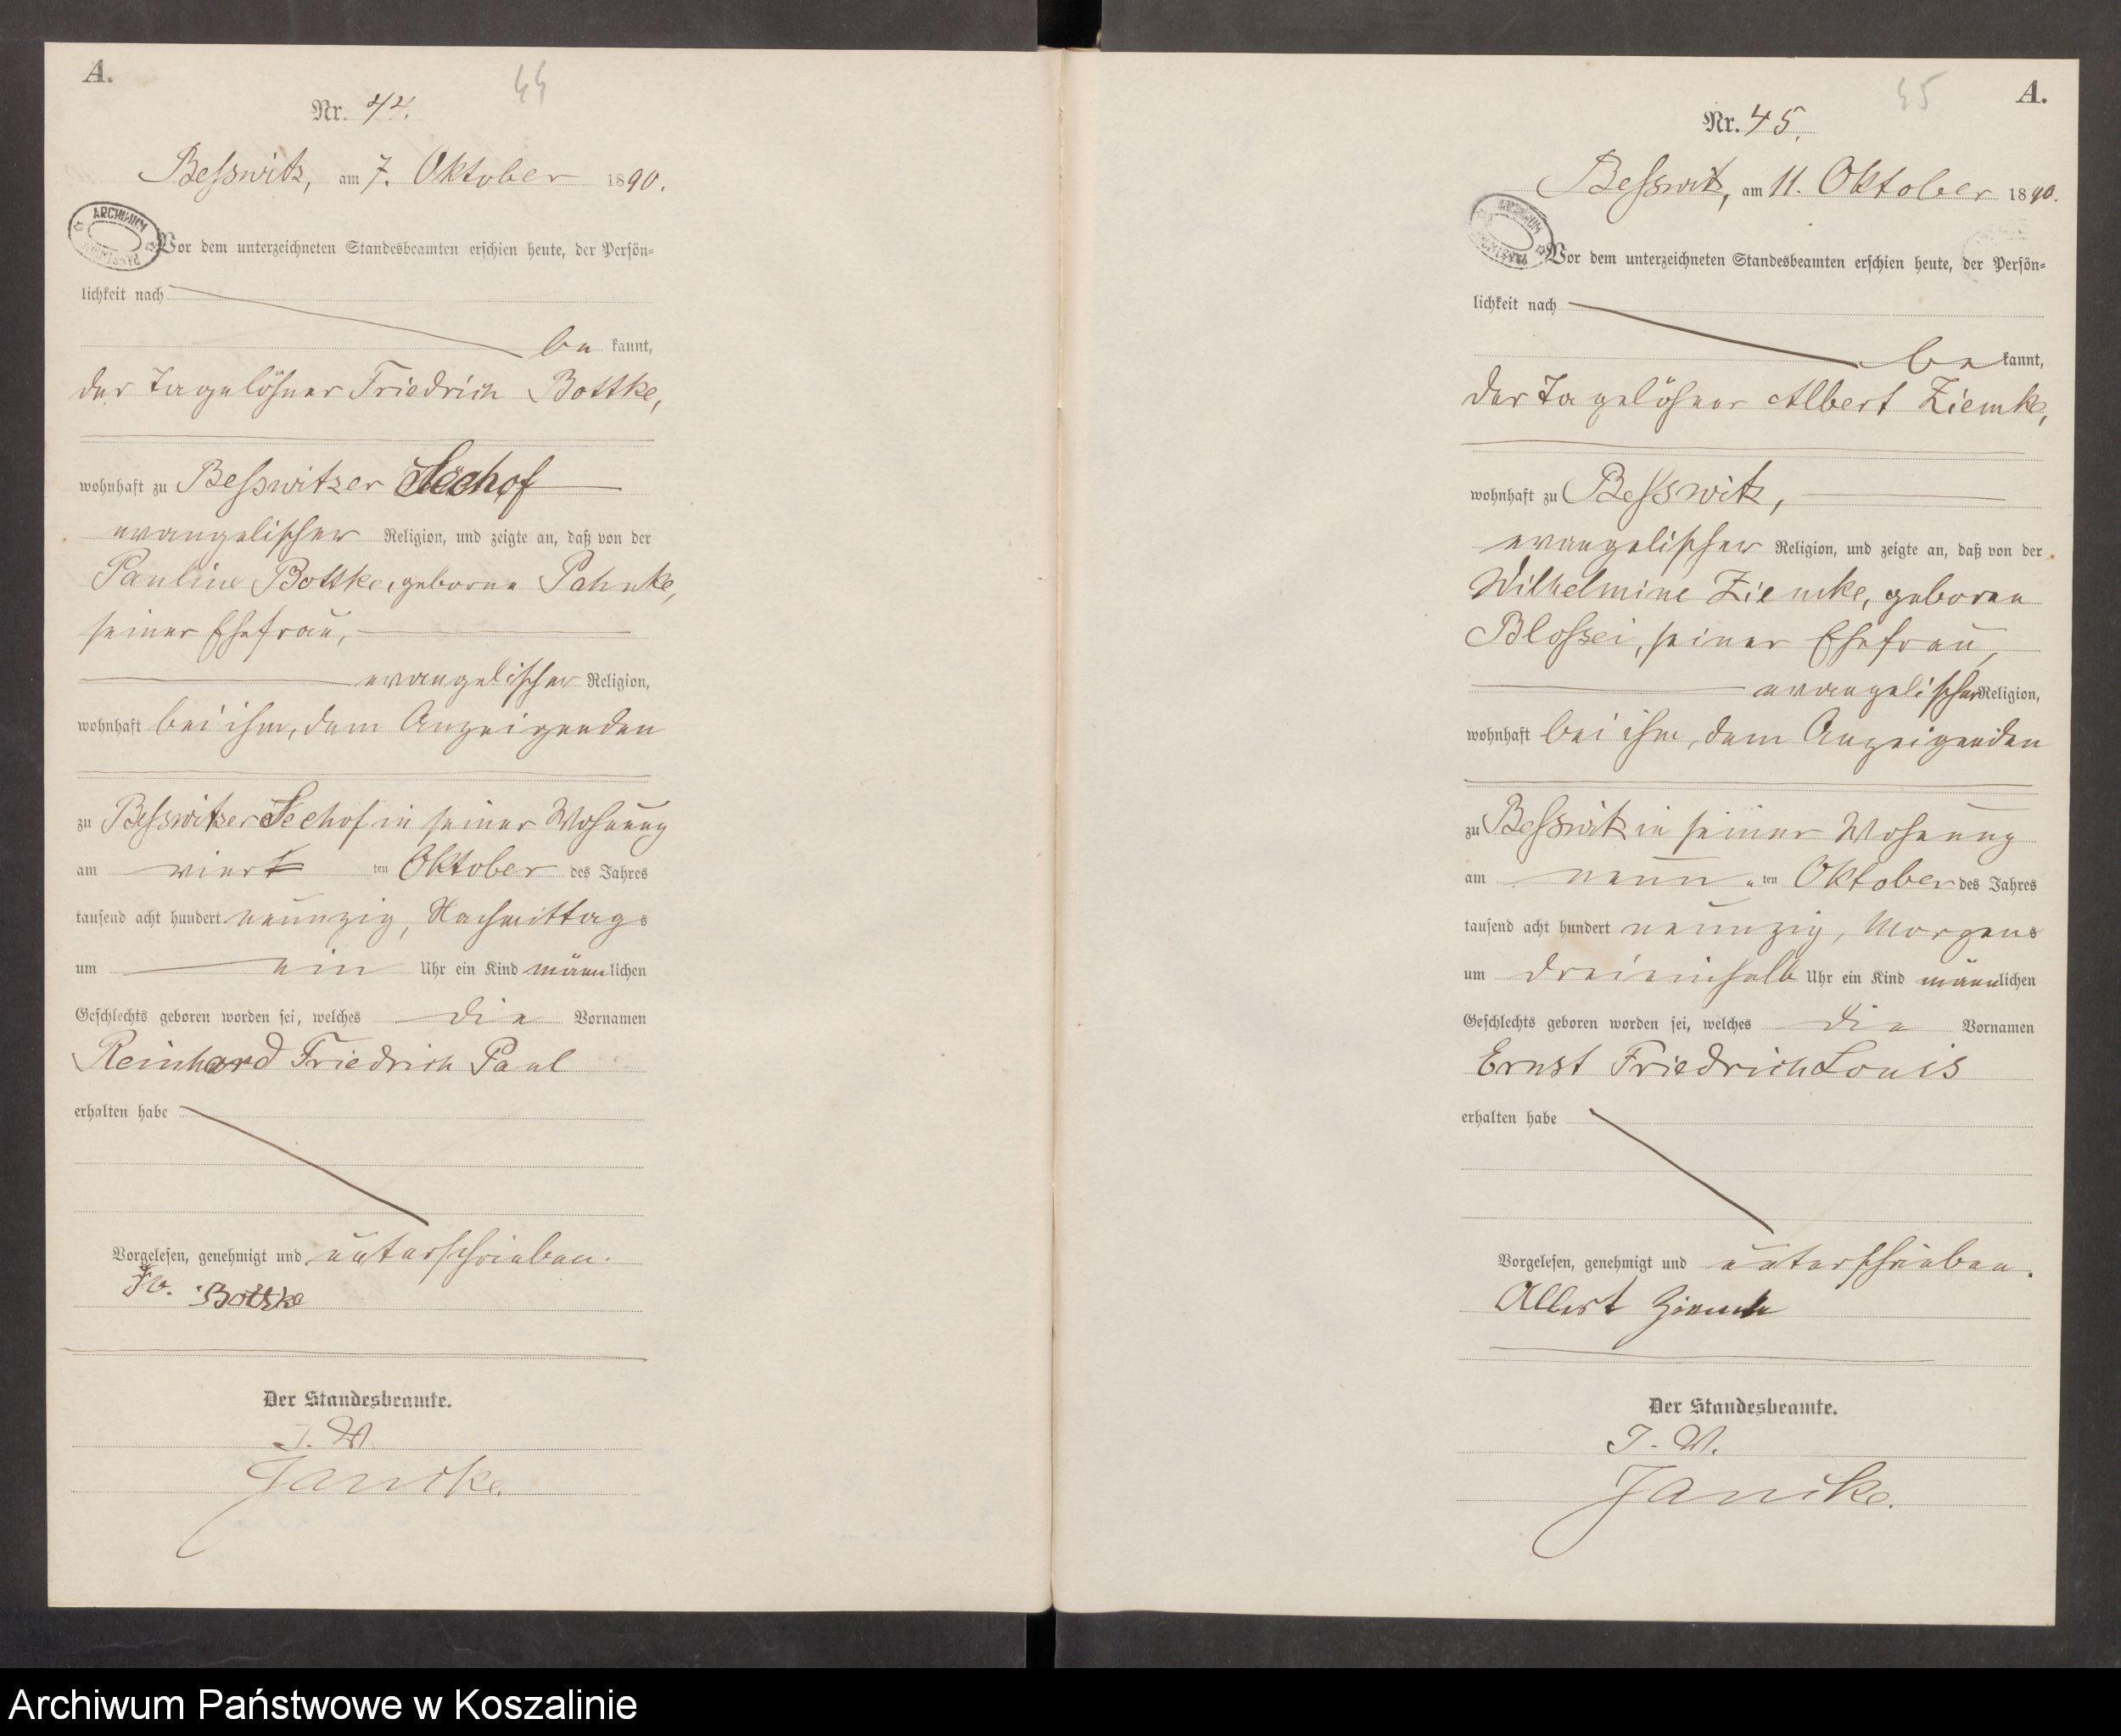 A.
44
Nr. 44.
Besswitz, am 7. Oktober 1890.
ARCHIWUM
Vor dem unterzeichneten Standesbeamten erschien heute, der Persön=
lichkeit nach
be kannt,
der Tagelöhner Friedrich Bottke,
wohnhaft zu Besswitzer Seehof
evangelischer Religion, und zeigte an, daß von der
Pauline Bottke, geborne Pahnke,
seiner Ehefrau,
evangelischer Religion,
wohnhaft bei ihm, dem Anzeigenden
zu Besswitzer Seehof in seiner Wohnung
am viert ten Oktober des Jahres
tausend acht hundert neunzig, Nachmittags
um ein Uhr ein Kind männlichen
Geschlechts geboren worden sei, welches die Vornamen
Reinhard Friedrich Paul
erhalten habe
Vorgelesen, genehmigt und unterschrieben.
Fr. Bottke
Der Standesbeamte.
I. V.
Janicke.
45
A.
Nr. 45.
Besswitz, am 11. Oktober 1890.
ARCHIWUM
Vor dem unterzeichneten Standesbeamten erschien heute, der Persön=
lichkeit nach
be kannt,
der Tagelöhner Albert Ziemke,
wohnhaft zu Besswitz,
evangelischer Religion, und zeigte an, daß von der
Wilhelmine Ziemke, geborne
Blossei, seiner Ehefrau,
evangelischer Religion,
wohnhaft bei ihm, dem Anzeigenden
zu Besswitz in seiner Wohnung
am neun ten Oktober des Jahres
tausend acht hundert neunzig, Morgens
um dreieinhalb Uhr ein Kind männlichen
Geschlechts geboren worden sei, welches die Vornamen
Ernst Friedrich Louis
erhalten habe
Vorgelesen, genehmigt und unterschrieben.
Albert Ziemke
Der Standesbeamte.
I. V.
Janicke.
Archiwum Państwowe w Koszalinie